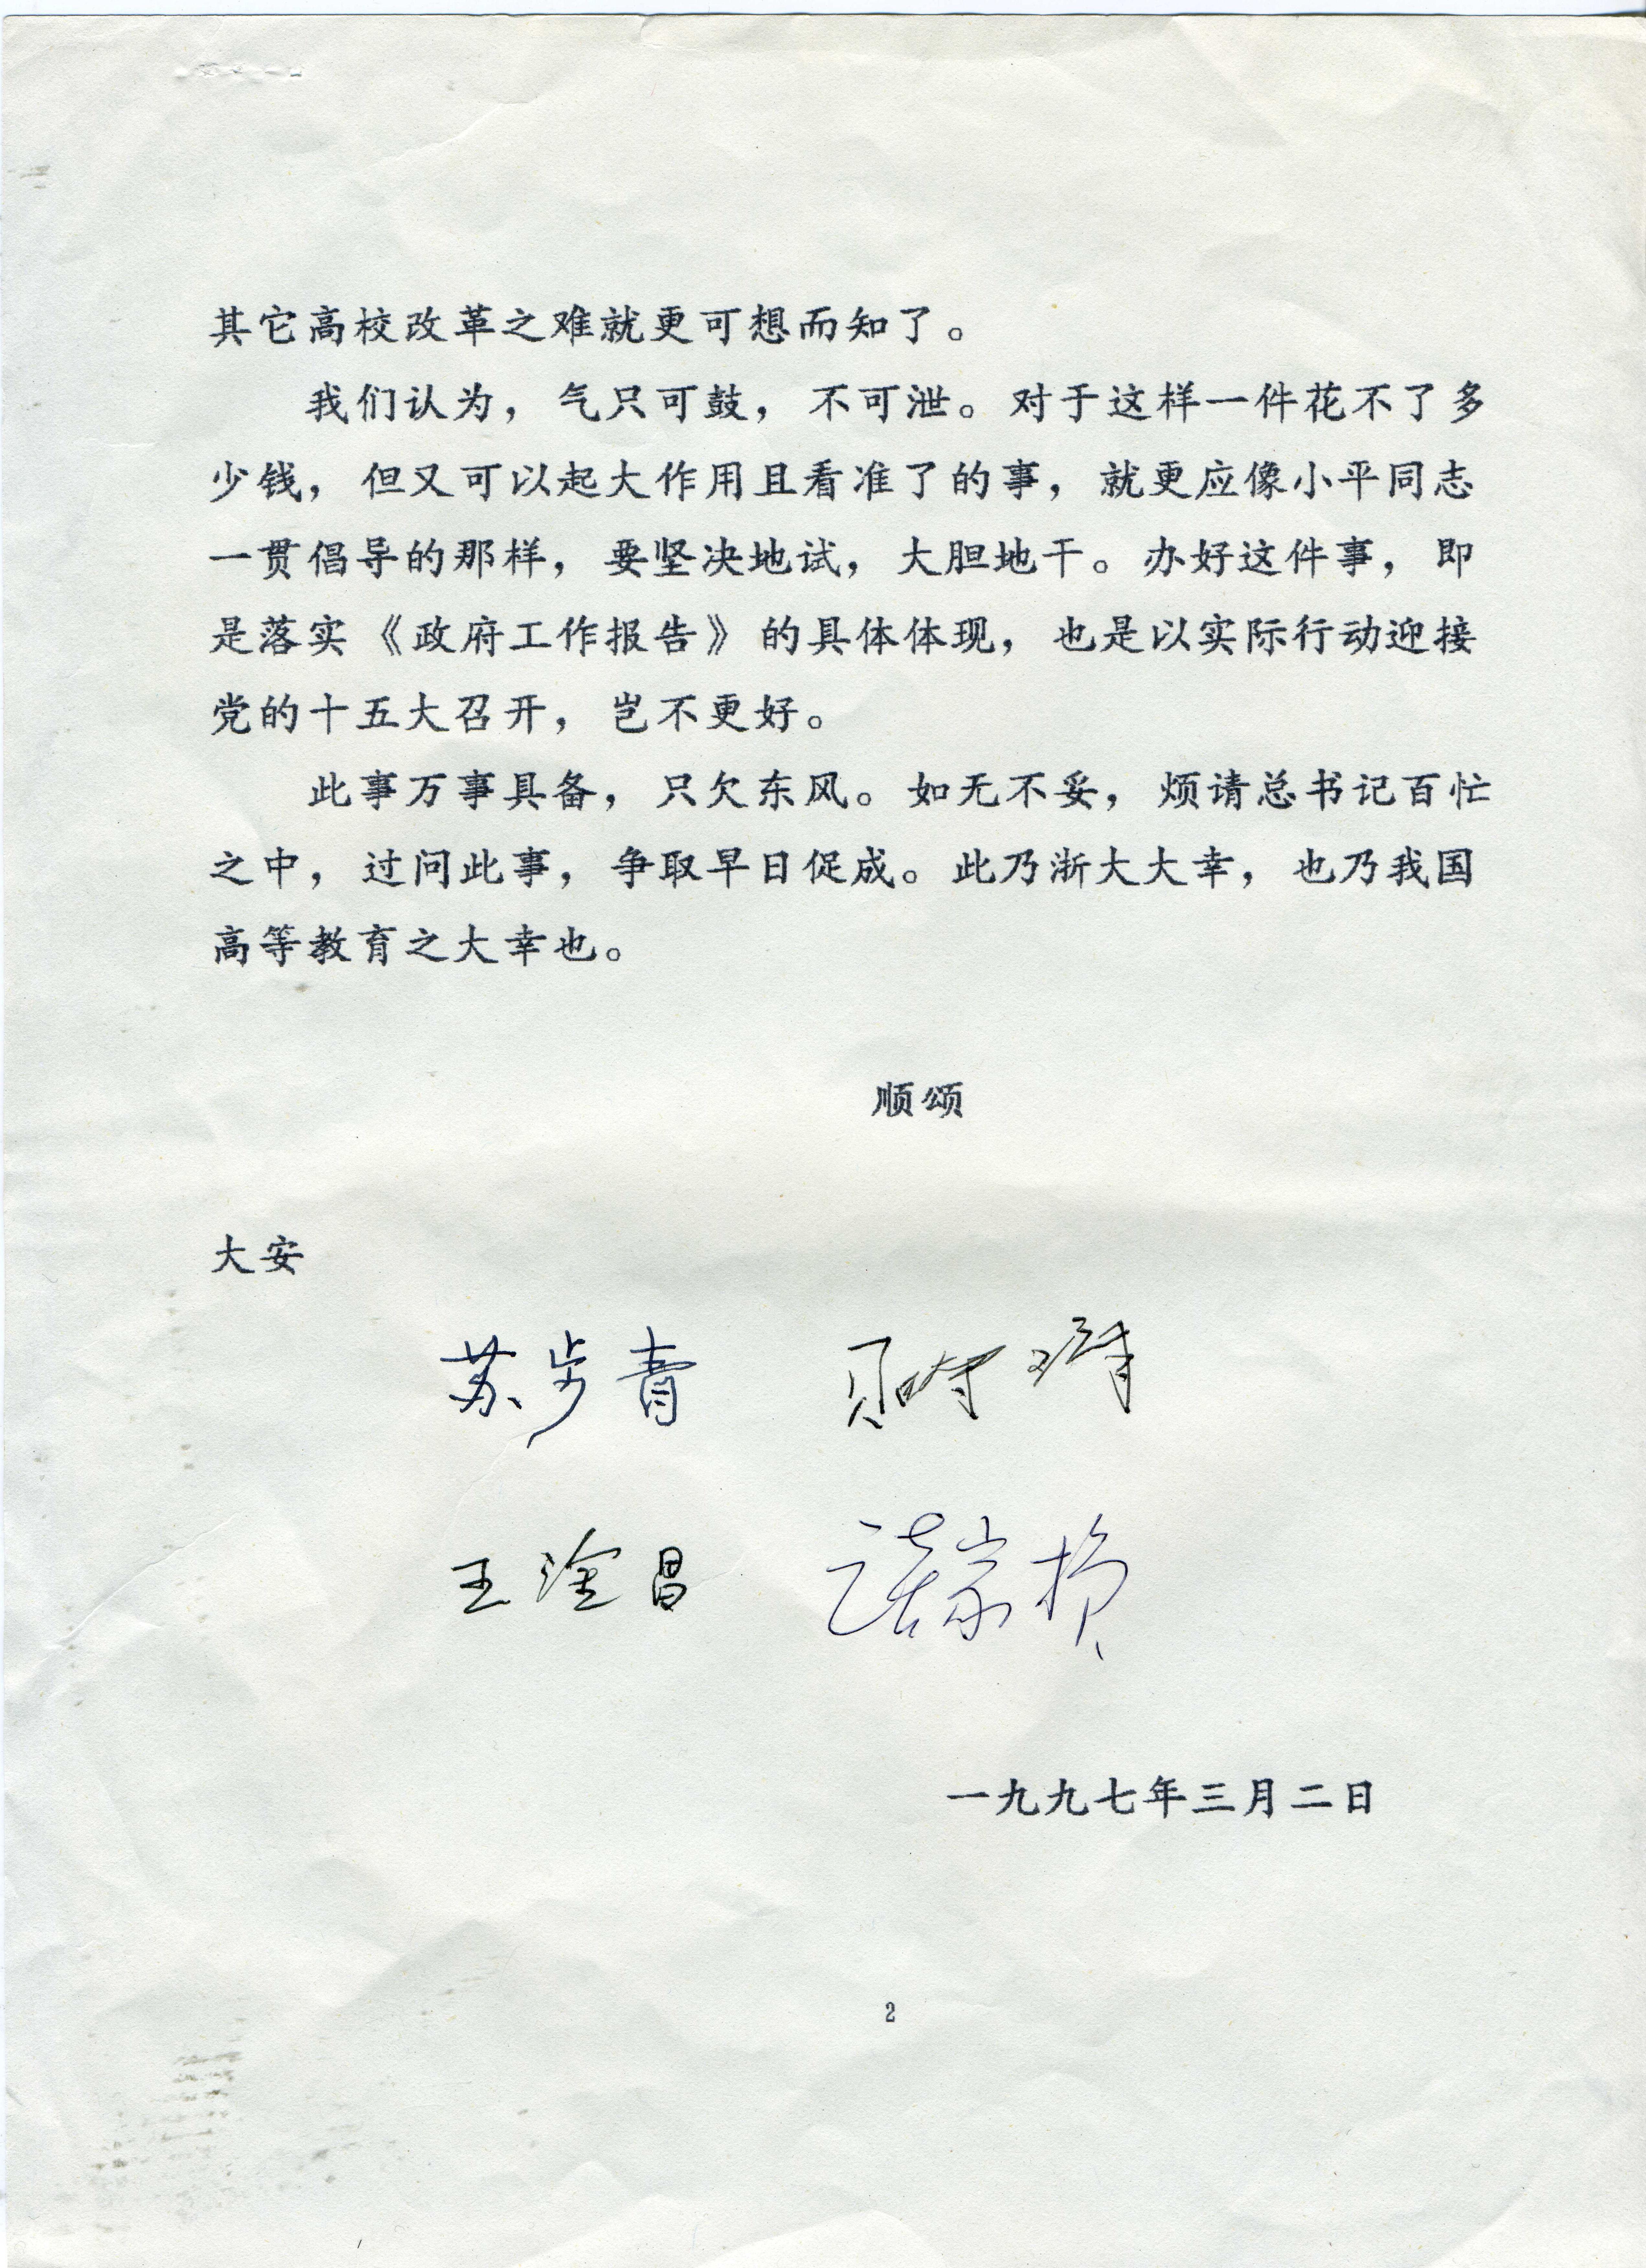 其它高校改革之难就更可想而知了。
我们认为，气只可鼓，不可泄。对于这样一件花不了多
少钱，但又可以起大作用且看准了的事，就更应像小平同志
一贯倡导的那样，要坚决地试，大胆地干。办好这件事，即
是落实《政府工作报告》的具体体现，也是以实际行动迎接
党的十五大召开，岂不更好。
此事万事具备，只欠东风。如无不妥，烦请总书记百忙
之中，过问此事，争取早日促成。此乃浙大大幸，也乃我国
高等教育之大幸也。
顺颂
大安
苏步青 贝时璋
王淦昌 谈家桢
一九九七年三月二日
2